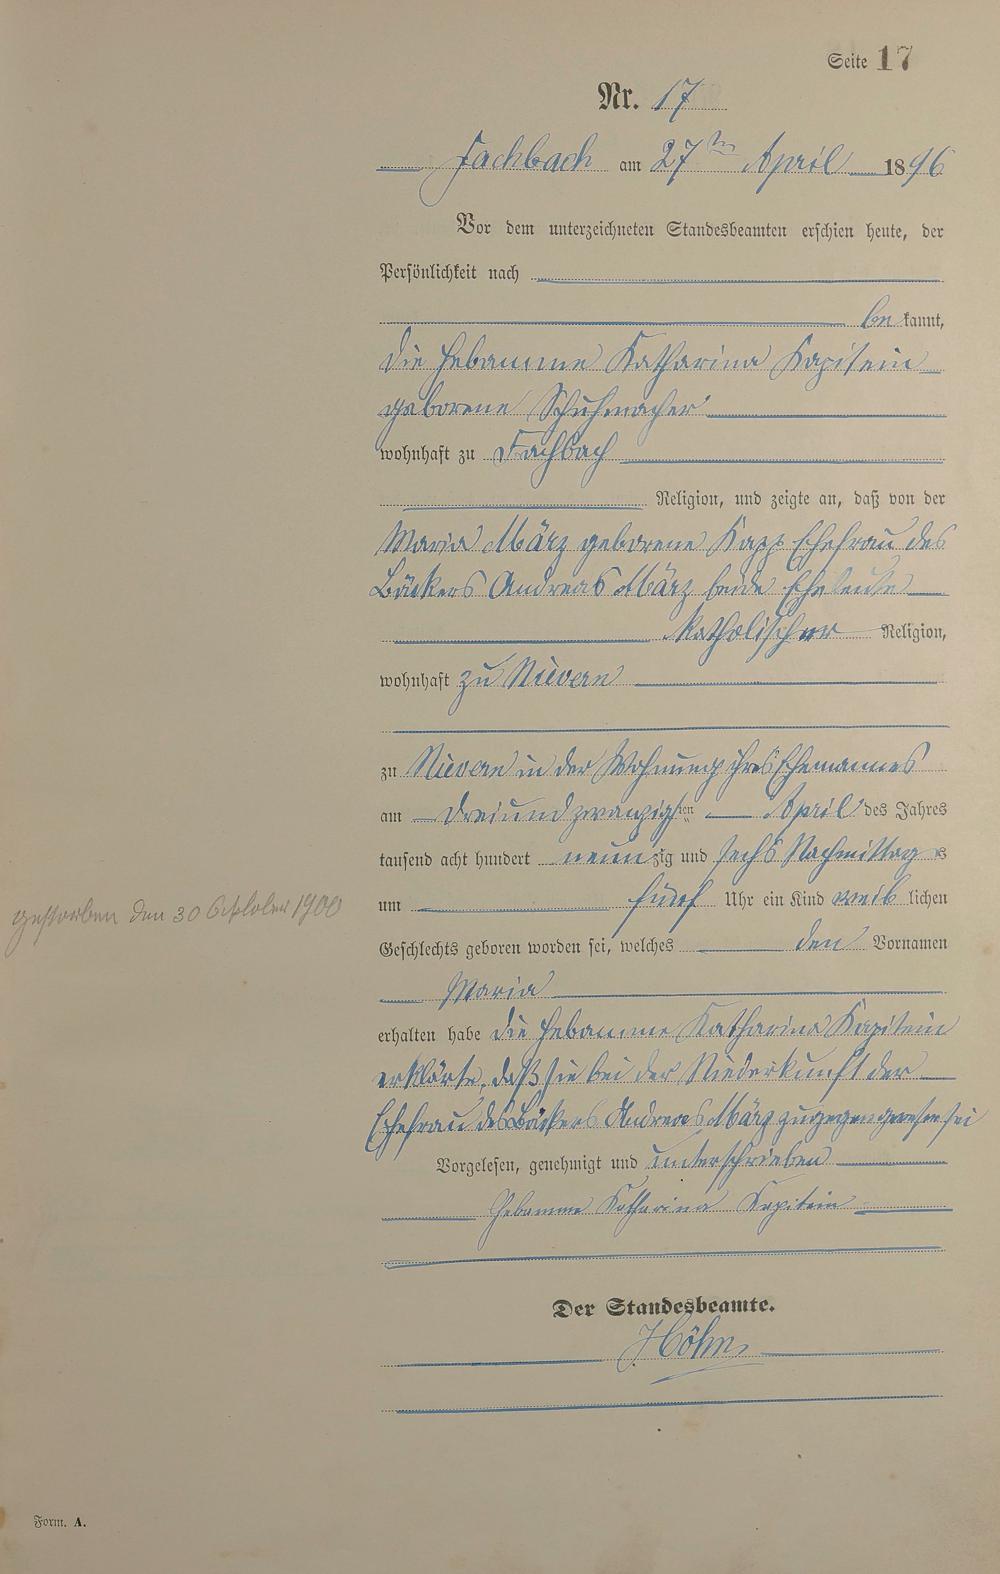 Seite 17
Nr. 17
Fachbach am 27ten April 1896
Vor dem unterzeichneten Standesbeamten erschien heute, der
Persönlichkeit nach
be kannt,
die Hebamme Katharina Kapitein
geborene Schuhmacher
wohnhaft zu Fachbach
Religion, und zeigte an, daß von der
Maria März geborene Kapp Ehefrau des
Bäckers Andreas März beide Eheleute
katholischer Religion,
wohnhaft zu Nievern
zu Nievern in der Wohnung ihres Ehemannes
am dreiundzwanzigsten April des Jahres
tausend acht hundert neunzig und sechs Nachmittags
um fünf Uhr ein Kind weib lichen
gestorben den 30 Oktober 1900
Geschlechts geboren worden sei, welches den Vornamen
Maria
erhalten habe die Hebamme Katharina Kapitein
erklärte, daß sie bei der Niederkunft der
Ehefrau des Bäckers Andreas März zugegen gewesen sei
Vorgelesen, genehmigt und unterschrieben
Hebamme Katharina Kapitein
Der Standesbeamte.
Höhn
Form. A.